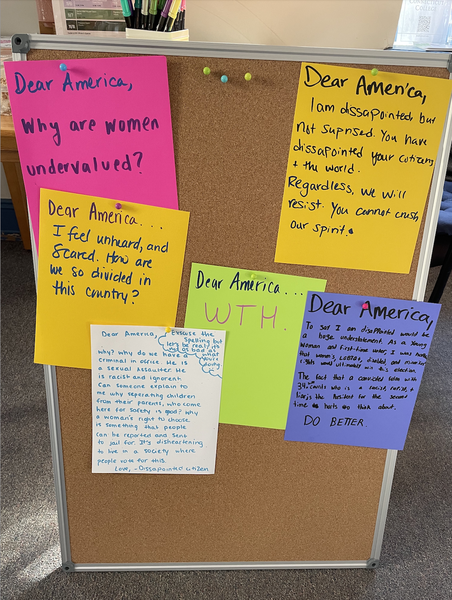 Dear America,
Why are women
undervalued?
Dear America,
I am dissapointed, but
not suprised. You have
dissapointed your citizens
+ the world.
Regardless, we will
resist. You cannot crush
our spirit.
Dear America...
I feel unheard, and
scared. How are
we so divided in
this country?
Dear America...
WTH.
Dear America,
Excuse the
spelling but
let's be real, it's
not as bad as
what
you're
doing
Why? Why do we have a
criminal in office. He is
a sexual assaulter. He
is racist and ignorent
Can someone explain to
me why seperating children
from their parents, who come
here for safety is good? Why
a woman's right to choose
is something that people
can be reported and sent
to jail for. It's disheartening
to live in a society where
people vote for this.
Love, - Dissapointed citizen
Dear America,
To say I am disappointed would be
a huge understatement. As a young
woman and first-time voter, I was
that women's,
rights would in this election.
The fact that a convicted felon with
34 who is a racist, rapist, +
liar, is the President for the second
time is hard to think about.
DO BETTER.